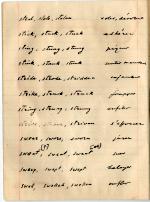 steal, stole, stolen
stick, stuck, stuck
sting, stung, stung
stink, stunk, stunk
stride, strode, stridden
strike, struck, struck frapper
string, strung, strung enfiler
strive, strove, striven s'efforcer
swear, swore, sworn jurer
sweat, sweat, sweat suer
sweep, swept, swept balayer
swell, swelled, swollen enfler